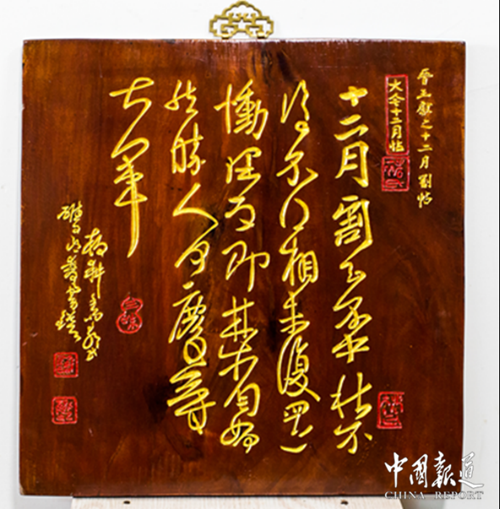 晉王獻之十二月割帖
大令十二月帖
十二月割至不中秋不
復不得相未復還
慟理為即甚省如何
然勝人何慶等
大軍
中国報道
CHINA REPORT